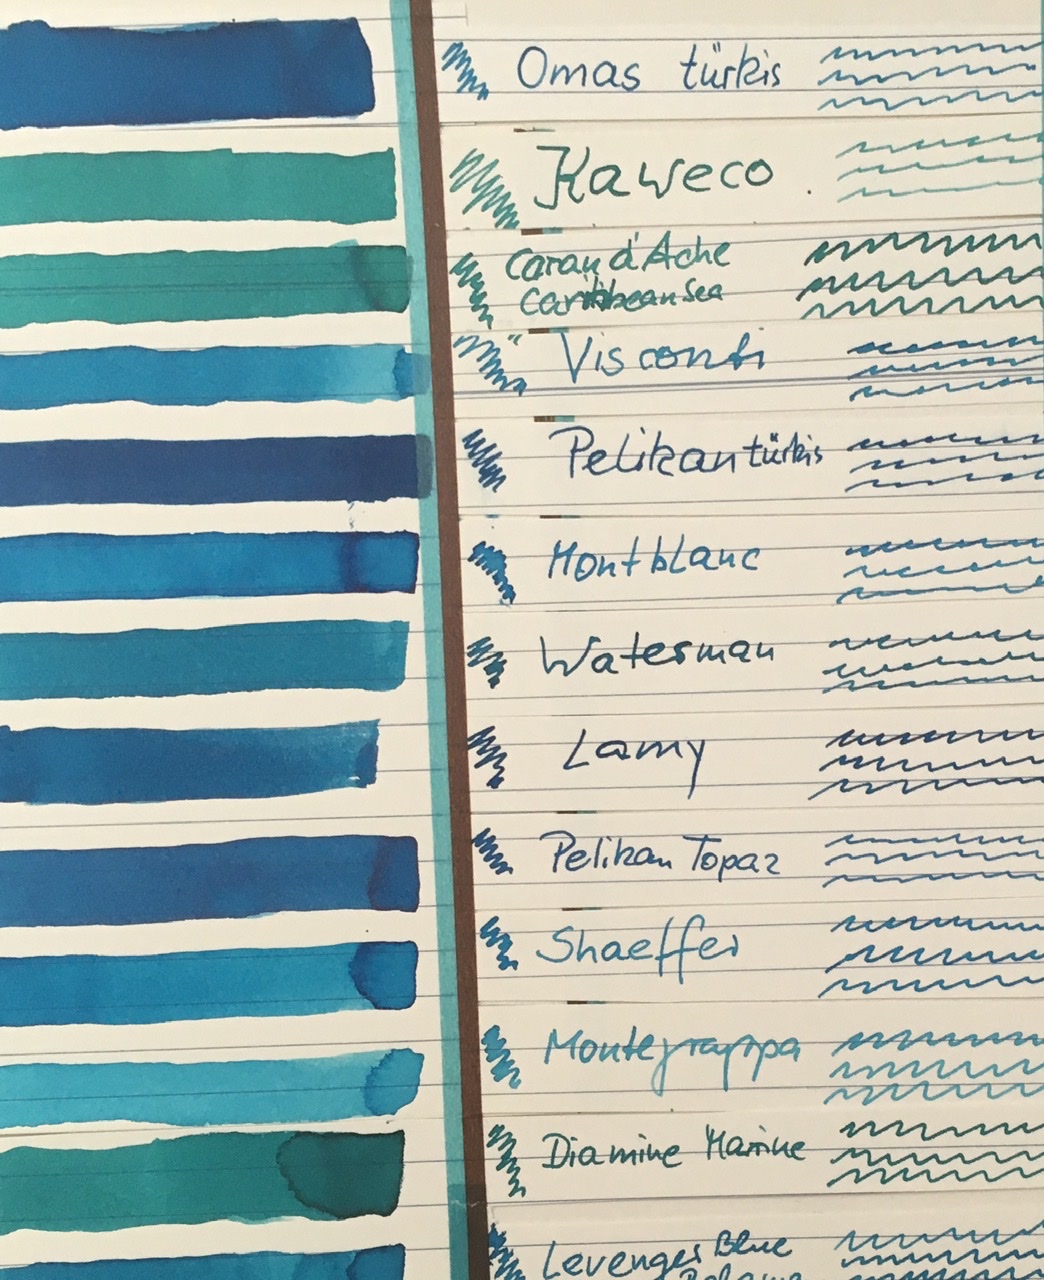 Omas türkis
Kaweco
Caran d'Ache
Caribbean Sea
Visconti
Pelikan türkis
Montblanc
Waterman
Lamy
Pelikan Topaz
Shaeffer
Montegrappa
Diamine Marine
Levenger Blue